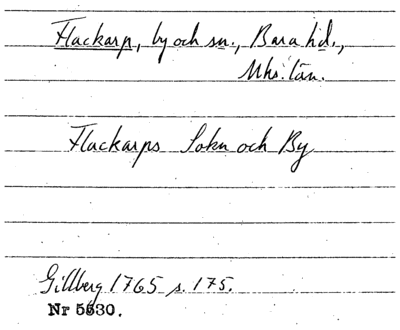 Flackarp, by och sn., Bara hd.,
Mhs. län.
Flackarps Sokn och By
Gillberg 1765 s. 175.
Nr 5630.